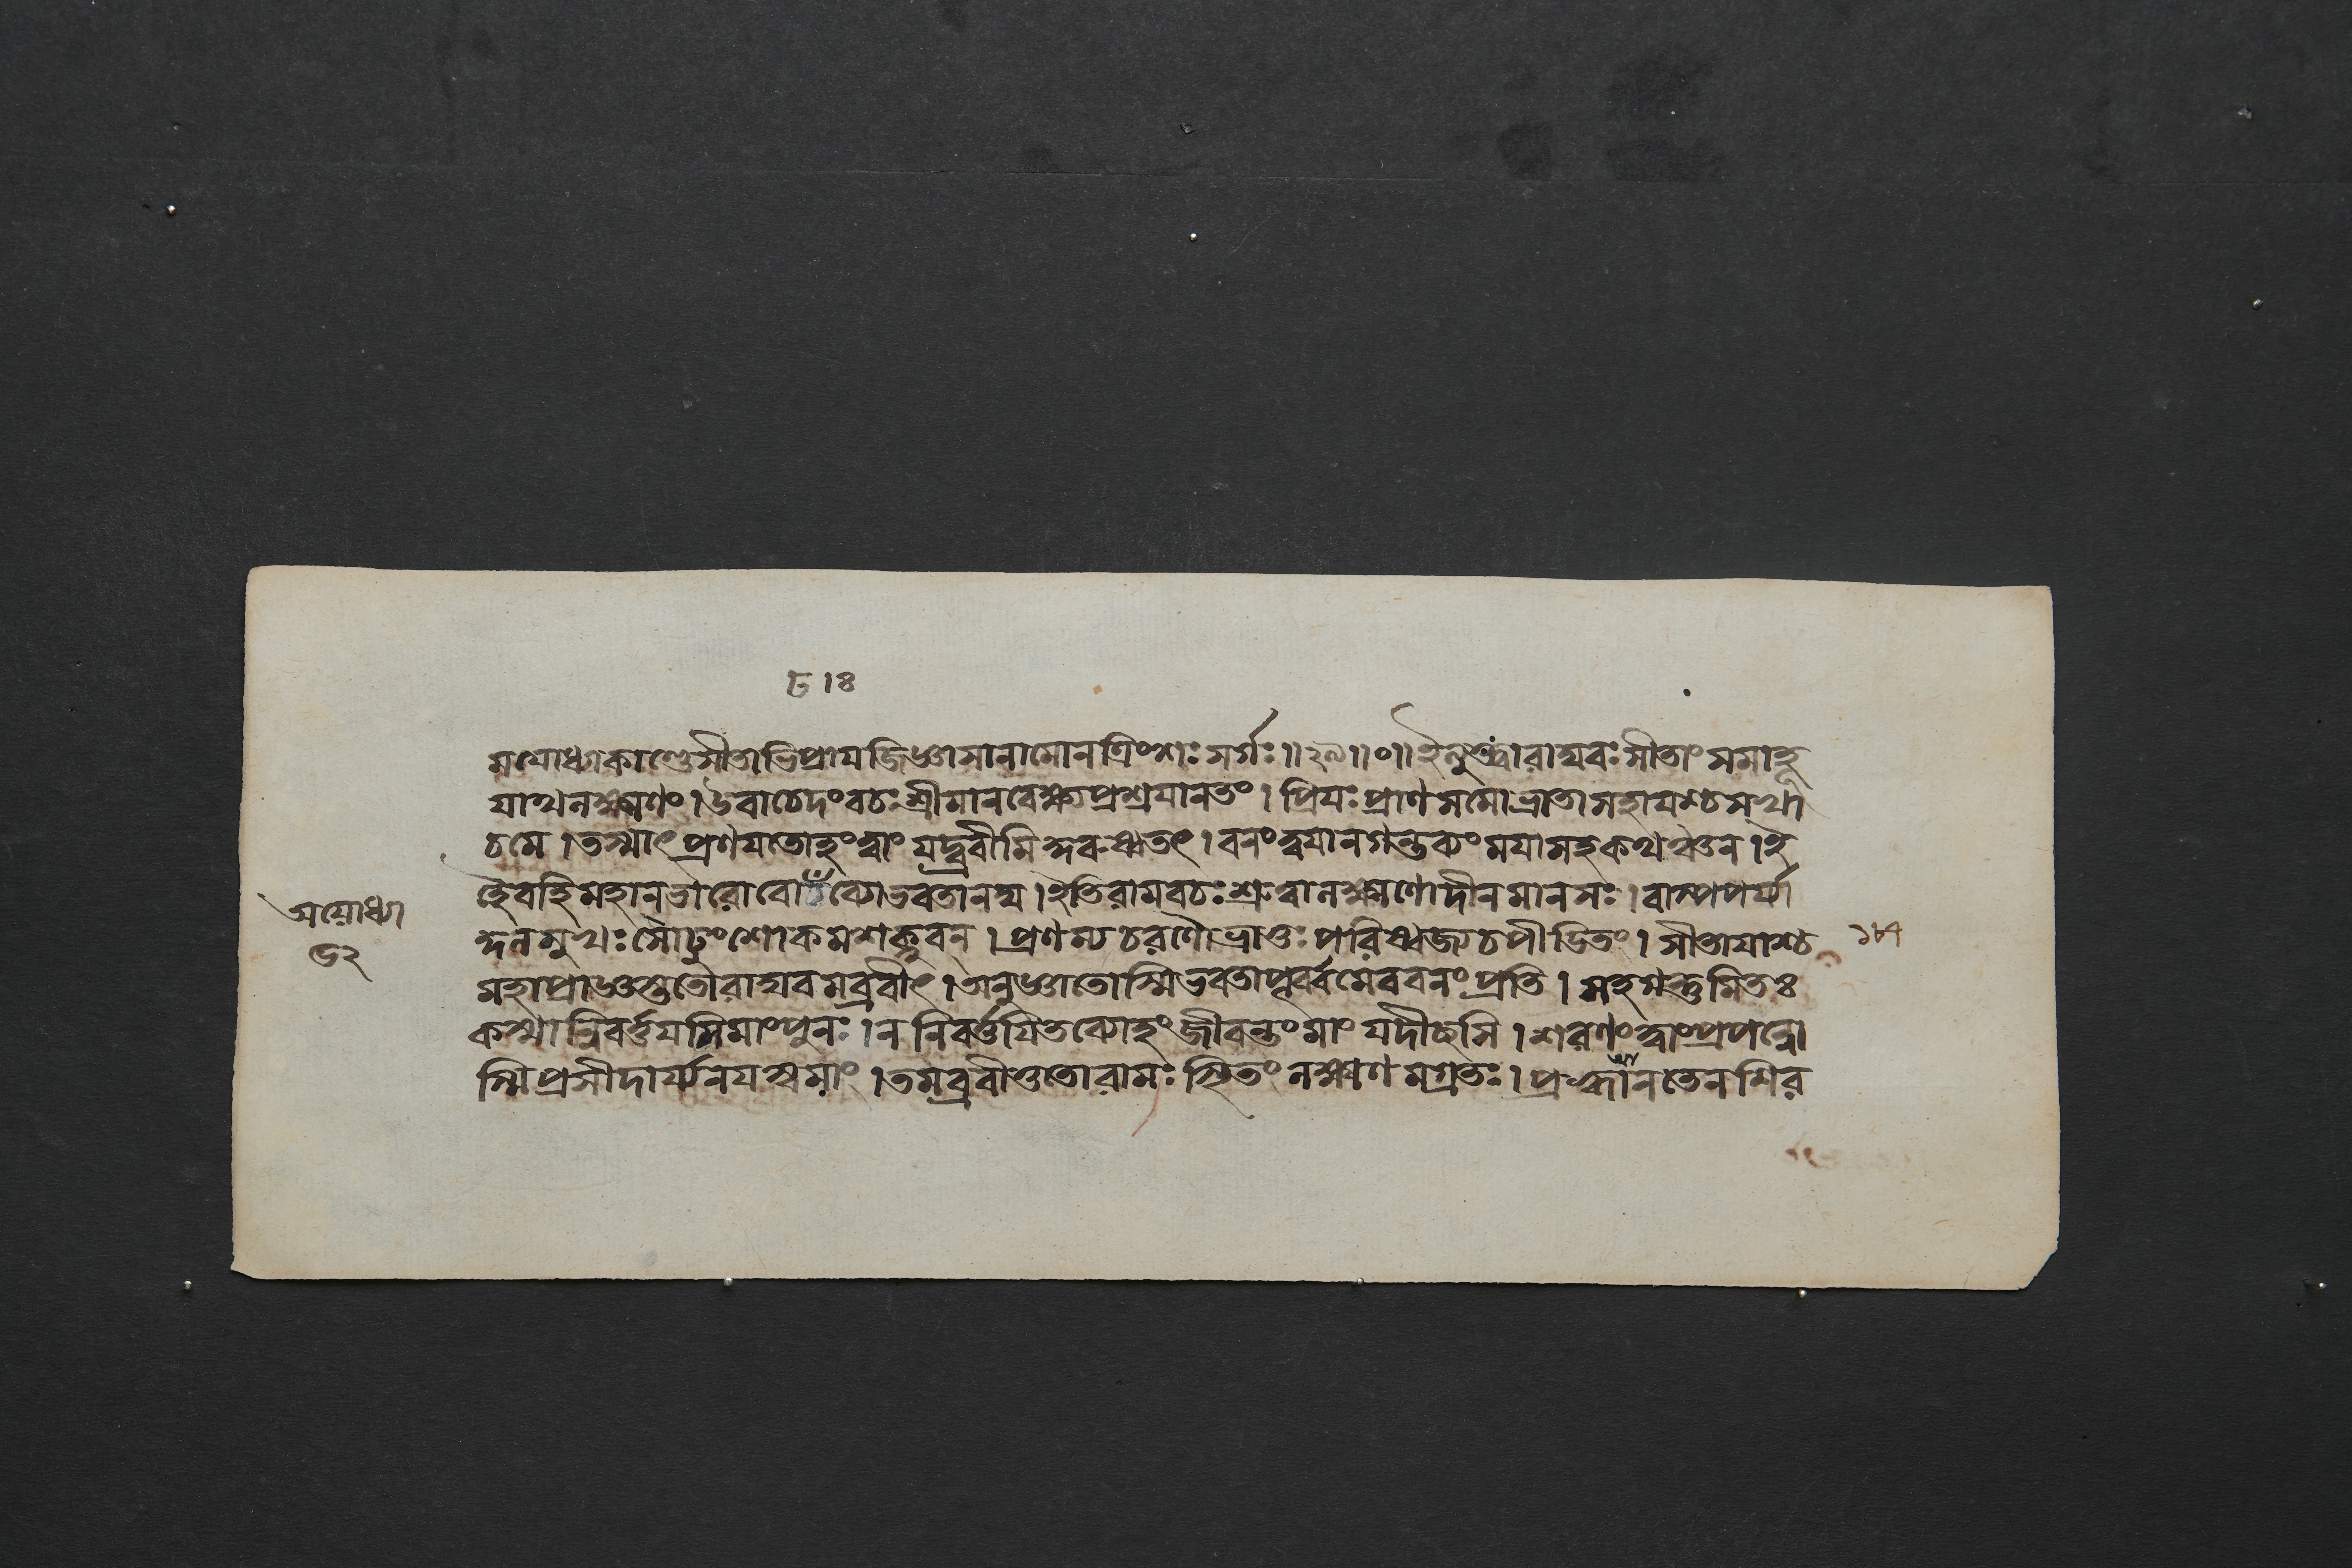 মযোধ্যাকাণ্ডেসীতাভিপ্রাযজিজ্ঞাসানামোনত্রিংশঃ সর্গঃ॥২৯॥০॥ইত্যুক্ত্বারাঘবঃ সীতাং সমাহূ
যাথলক্ষ্মণং।উবাচেদংবচঃ শ্রীমানবেক্ষ্যপ্রশ্রযানতং। প্রিযঃ প্রাণসমোভ্রাতাসহাযশ্চসখা
চমে।তস্মাৎ প্রণযতোহংত্বাং যদ্ব্রবীমিকুরুষ্বতৎ।বনংত্বযানগন্তব্যংমযাসহকথঞ্চন।ই
হৈবহিমহানভারোবোঢব্যোভবতানঘ।ইতিরামবচঃ শ্রুত্বালক্ষ্মণোদীনমানসঃ।বাষ্পপর্য্যা
অযোধ্যা
৬২
কুলমুখঃ সোঢুংশোকমশক্নুবন্।প্রণম্যচরণৌভ্রাতুঃ পরিষ্বজ্যচপীডিতং।সীতাযাশ্চ
১৮৭
মহাপ্রাজ্ঞস্ততোরাঘবমব্রবীৎ।অনুজ্ঞাতোস্মিভবতাপূর্ব্বমেববনংপ্রতি।সহগন্তুমিতঃ
কস্মান্নিবর্ত্তযসিমাংপুনঃ।ননিবর্ত্তযিতব্যোহং জীবন্তংমাং যদীছসি।শরণংত্বাংপ্রপন্নো
স্মিপ্রসীদার্য্যনযস্বমাং।তমব্রবীত্ততোরামঃ স্থিতং লক্ষ্মণমগ্রতঃ। নতেনশির